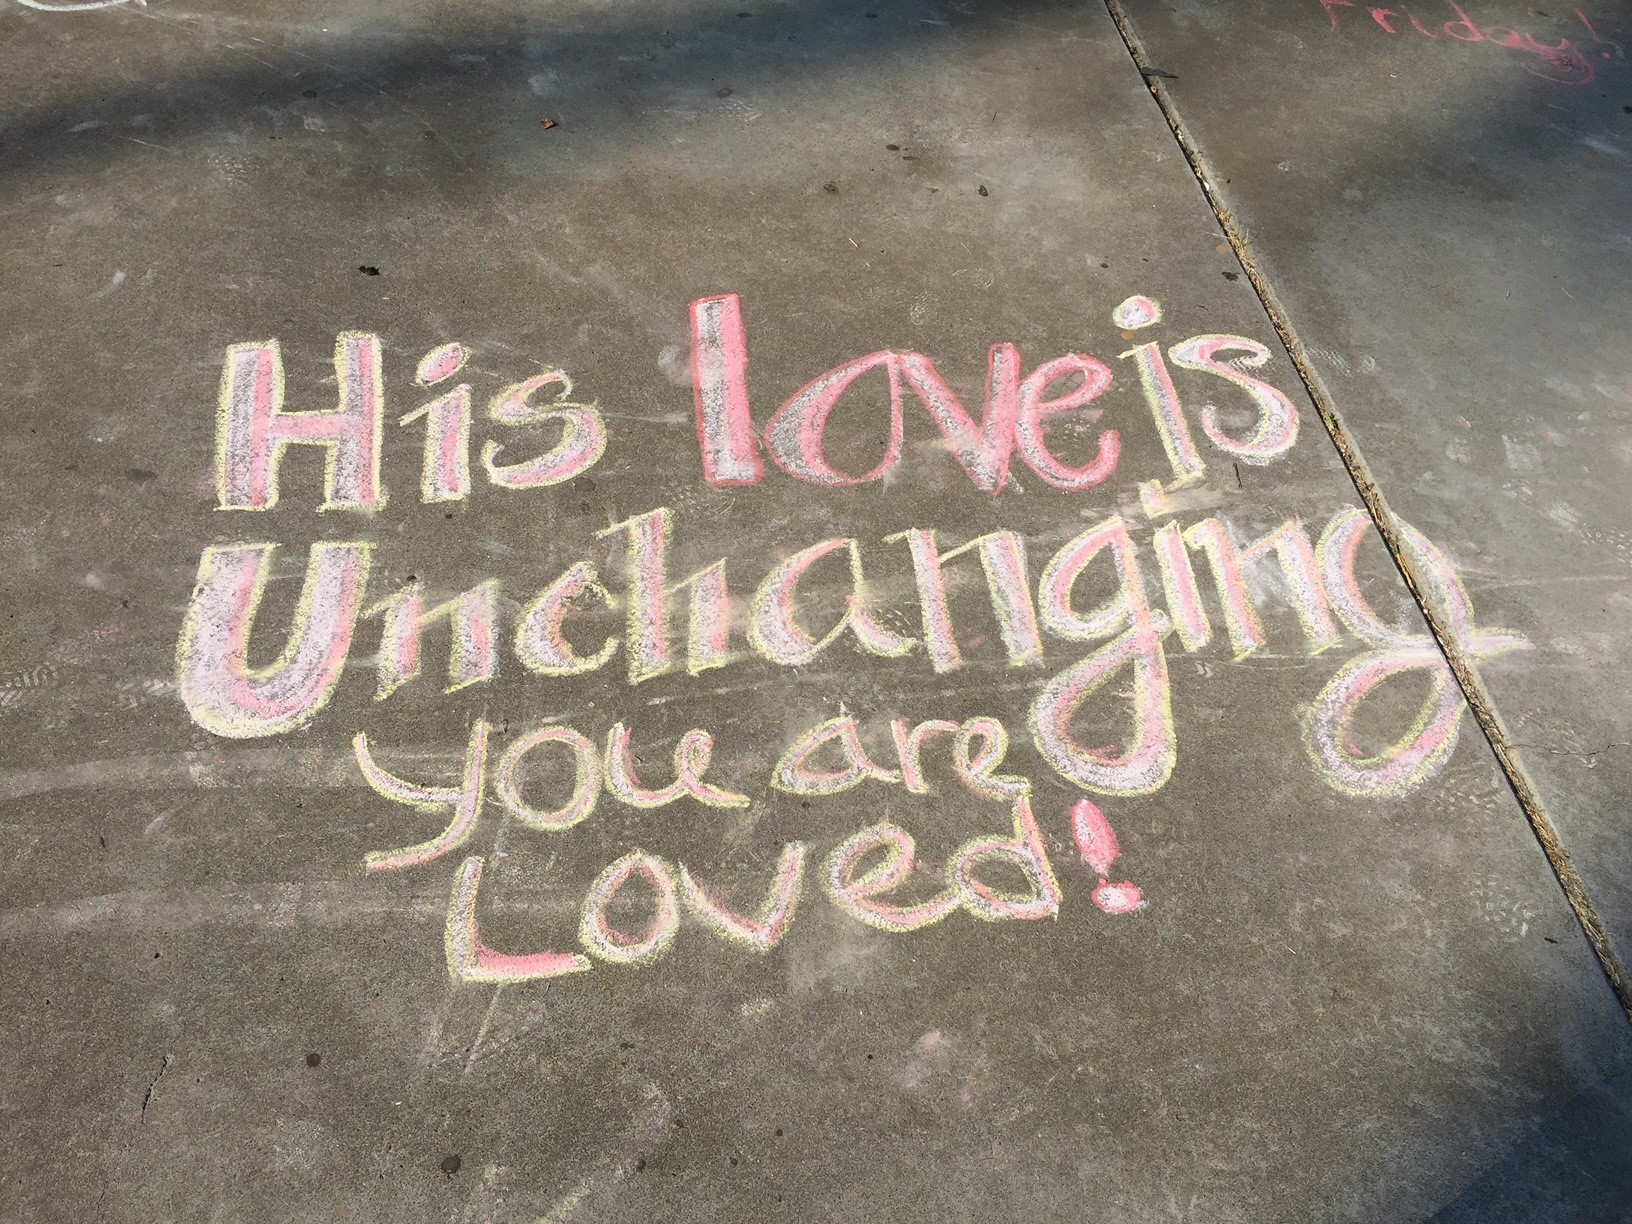 Friday!
His love is
Unchanging
you are
Loved!